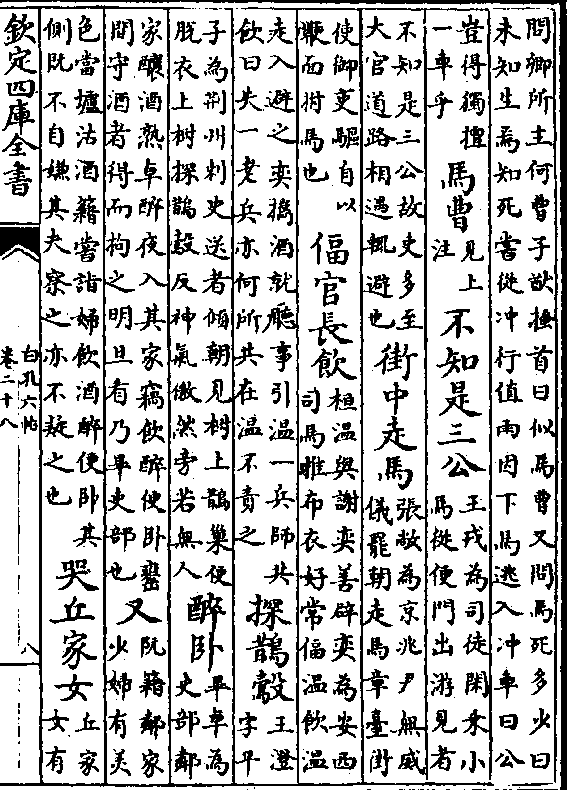 問卿所主何曹子猷捶首曰似馬曹又問馬死多少曰
未知生焉知死嘗從沖行值雨因下馬逃入沖車曰公
豈得獨擅
一車乎
馬曹
見上
注
不知是三公
王戎為司徒閑乘小
馬從便門出游見者
不知是三公故吏多至
大官道路相遇輒避也
街中走馬
張敞為京兆尹無威
儀罷朝走馬章臺街
使御吏驅自以
鞭面拊馬也
偪官長飲
桓温與謝奕善辟奕為安西
司馬雖布衣好常偪温飲温
走入避之奕擕酒就聽事引温一兵師共
飲曰失一老兵亦何所共在温不責之
探鵲鷇
王澄
字平
子為荆州刺史送者傾朝見樹上鵲巢便
脱衣上樹探鵲鷇反神氣傲然旁若無人
醉卧
畢卓為
吏部鄰
家釀酒熟卓醉夜入其家竊飲醉便卧甕
間守酒者得而拘之明旦有乃畢吏部也
又
阮籍鄰家
少婦有美
色當壚沽酒籍嘗詣婦飲酒醉便卧其
側既不自嫌其夫察之亦不疑之也
哭丘家女
丘家
女有
欽定四庫全書
白孔六帖
卷二十八
八